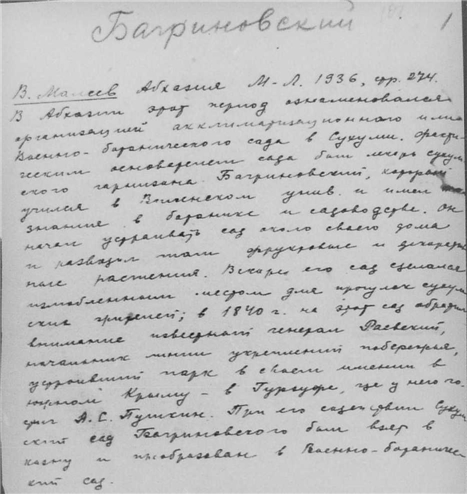 Багриновский
1
В. Малеев Абхазия М-Л. 1936, стр. 274.
В Абхазии этот период ознаменовался
организацией акклиматизационного или
Военно-ботанического сада в Сухуми. Факти-
ческим основателем сада был лекарь сухум
ского гарнизона Багриновский, который
учился в Виленском унив. и имел
знание в ботанике и садоводстве. Он
начал устраивать сад около своего дома
и разводил там фруктовые и декоратив
ные растения. Вскоре его сад сделался
излюбленным местом для прогулок сухум
ских жителей; в 1840 г. на этот сад обратил
внимание известный генерал Раевский,
начальник линии укреплений побережья,
устроивший парк в своем имении в
южном Крыму - в Гурзуфе, где у него го-
стил А.С. Пушкин. При его содействии Сухум
ский сад Багриновского был взят в
казну и преобразован в Военно-ботаничес
кий сад.